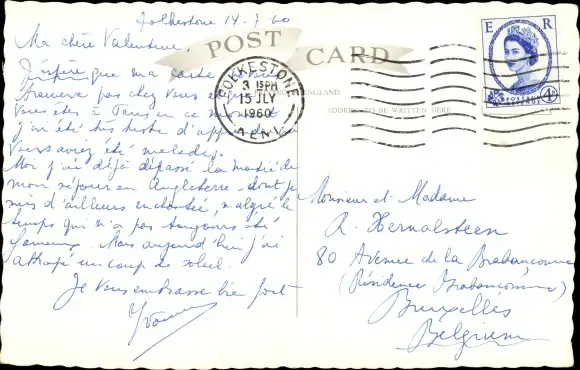 Folkestone 14.7.60
Ma chère Valentine,
POST CARD
J'espère que ma carte ne vous
trouvera pas chez vous et que
ENGLAND
ADDRESS TO BE WRITTEN HERE
vous êtes à Paris en ce moment
j'ai été très triste d'apprendre
vous aviez été malade.
Moi j'ai déjà dépassé la moitié de
mon séjour en Angleterre dont je
suis d'ailleurs enchantée, malgré le
temps qui n'a pas toujours été
fameux. Mais aujourd'hui j'ai
attrapé un coup de soleil.
Je vous embrasse bien fort
Yvonne
FOLKESTONE
3 15PM
15 JLY
1960
KENT
E R
POSTAGE
REVENUE
4D
Monsieur et Madame
R. Hernalsteen
80 Avenue de la Brabançonne
(Résidence Brabançonne)
Bruxelles
Belgium